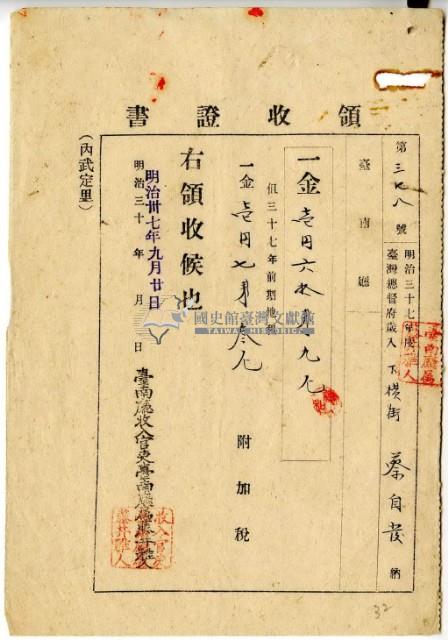 領收證書
第三七八號
明治三十七年度
臺灣總督府歲入
下橫街 蔡自發 納
臺南廳
一金壱円六拾九
但三十七年前期地租
一金壱円七
附加稅
右領收候也
明治卅七年九月廿日
明治三十 年 月 日
臺南廳收入官吏臺南廳屬藤井雅人
收入官吏
藤井雅人
(內武定里)
國史館臺灣文獻館
TAIWAN HISTORICA
32